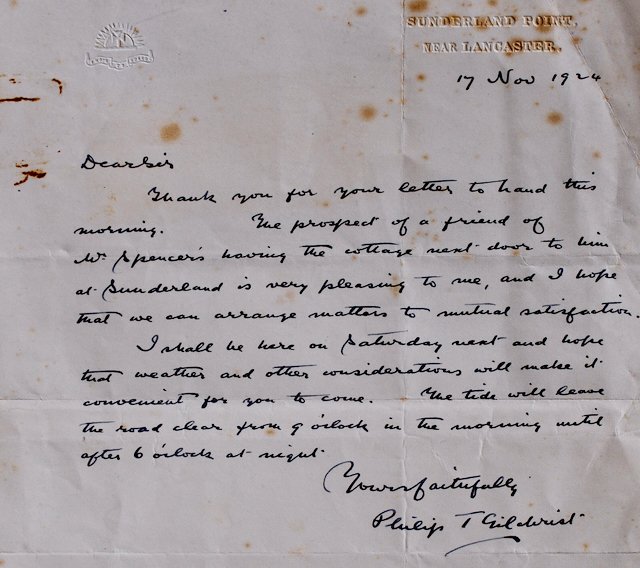 SUNDERLAND POINT,
NEAR LANCASTER.
17 Nov 1924
Dear Sir
Thank you for your letter to hand this
morning. The prospect of a friend of
Mr Spencer's having the cottage next door to him
at Sunderland is very pleasing to me, and I hope
that we can arrange matters to mutual satisfaction.
I shall be here on Saturday next and hope
that weather and other considerations will make it
convenient for you to come. The tide will leave
the road clear from 9 o'clock in the morning until
after 6 o'clock at night.
Yours faithfully
Philip T Gilchrist